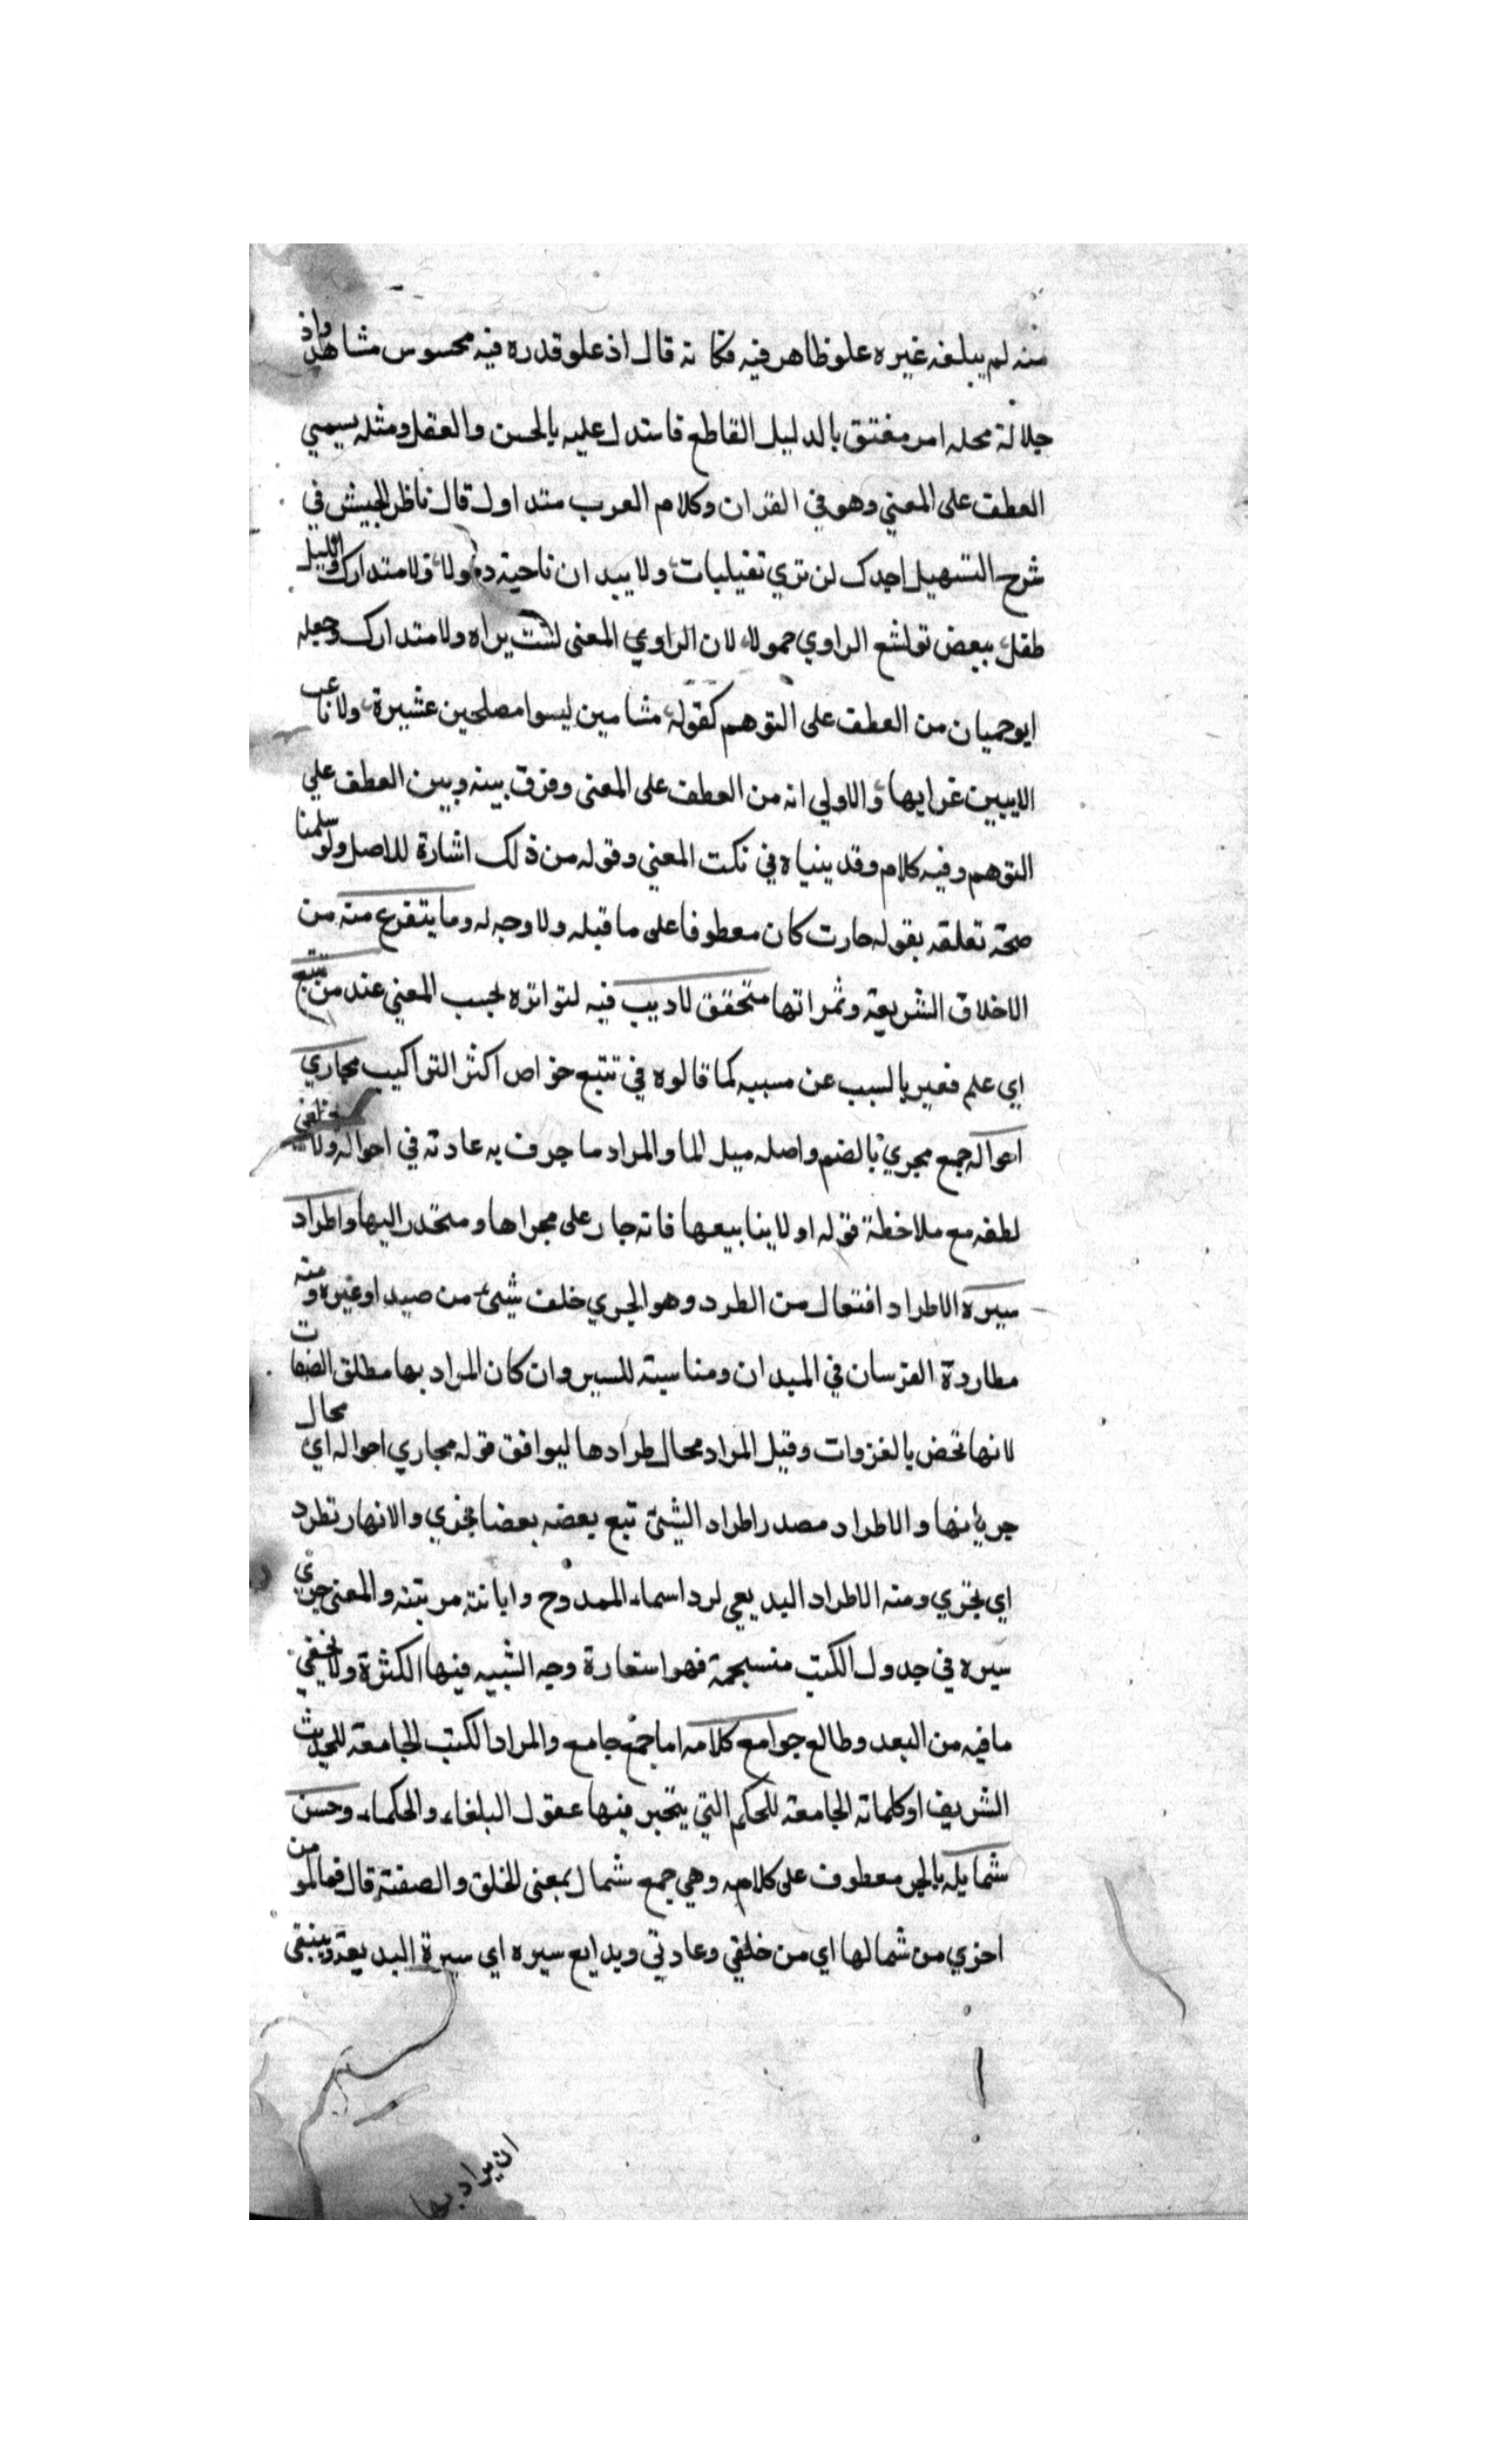 منه لم يبلغه غيره علو ظاهر فيه فكانه قال اذ علو قدره فيه محسوس مشاهد واذ
جلالة محله امر مفتق بالدليل القاطع فاستدل عليه بالحسن والعقل ومثله يسمي
العطف على المعني وهو في القران وكلام العرب متداول قال ناظر الجيش في
شرح التسهيل اجدك لن تري تغيلبات ولا بيدان ناحية ذمولا ولا متدارك والليل
طفل ببعض نواشع الراوي حمولا لان الراوي المعنى لست براه ولا متدارك وجعله
ابو حيان من العطف على التوهم كقوله مشامين ليسوا مصلحين عشيرة ولا ناعب
الا ببين غرابها والاولي انه من العطف على المعنى وفرق بينه وبين العطف علي
التوهم وفيه كلام وقد بنياه في نكت المعني وقوله من ذلك اشارة للاصل ولو سلمنا
صحة تعلقه بقوله حارت كان معطوفا على ما قبله ولا وجه له وما يتفرع منه من
الاخلاق الشريفة وثمراتها متحقق لا ريب فيه لتواتره بحسب المعني عند من تتبع
اي علم فعبر بالسبب عن مسببه كما قالوه في تتبع خواص اكثر التراكيب مجاري
احواله جمع مجري بالضم واصله ميل الما والمراد ما جرف به عادته في احواله ولا يخفي
لطفه مع ملاحظة قوله اولا ينابيعها فانه جار على مجراها ومتحدر اليها واطراد
سيره الاطراد افتعال من الطرد وهو الجري خلف شيئ من صيد او غيره ومنه
مطاردة الفرسان في الميدان ومناسبته للسير وان كان المراد بها مطلق الصفات
لانها تخض بالغزوات وقيل المراد محال طرادها ليوافق قوله مجاري احواله اي محال
جريانها والاطراد مصدر اطراد الشيئ تبع بعضه بعضا بجري والانهار تطرد
اي تجري ومنه الاطراد البديعي لرد اسماء الممدوح وابانته مرتبته والمعنى جري
سيره في جدول الكتب منسجمة فهو استعارة وجه الشبه فيها الكثرة ولا يخفي
ما فيه من البعد وطالع جوامع كلامه اما جمع جامع والمراد الكتب الجامعة للحديث
الشريف او كلماته الجامعة للحكم التي يتحير فيها عقول البلغاء والحكماء وحسن
شمايله بالجر معطوف على كلامه وهي جمع شمال بمعنى الخلق والصفة قال فما لمو من
اخري من شمالها اي من خلقي وعادتي وبدايع سيره اي سيرة البديعة وينبقى
ان يراد بها